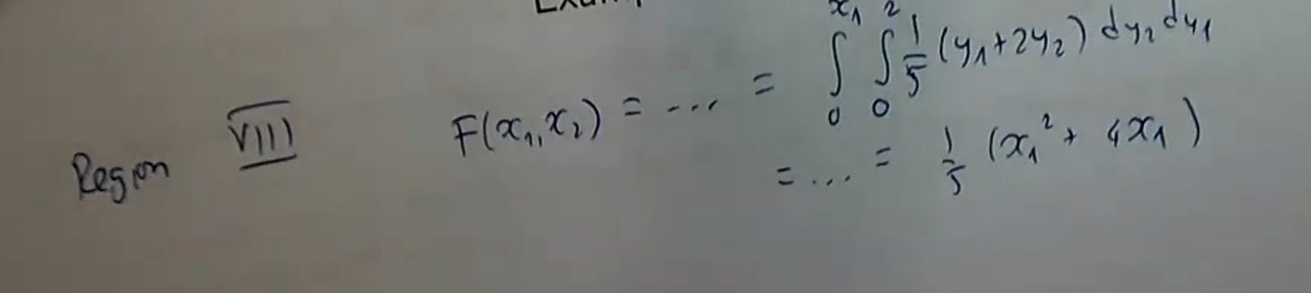 Exam
Region VIII F(x₁,x₂) = ... = ∫₀^x₁ ∫₀² 1/5 (y₁+2y₂) dy₂ dy₁
= ... = 1/5 (x₁² + 4x₁)